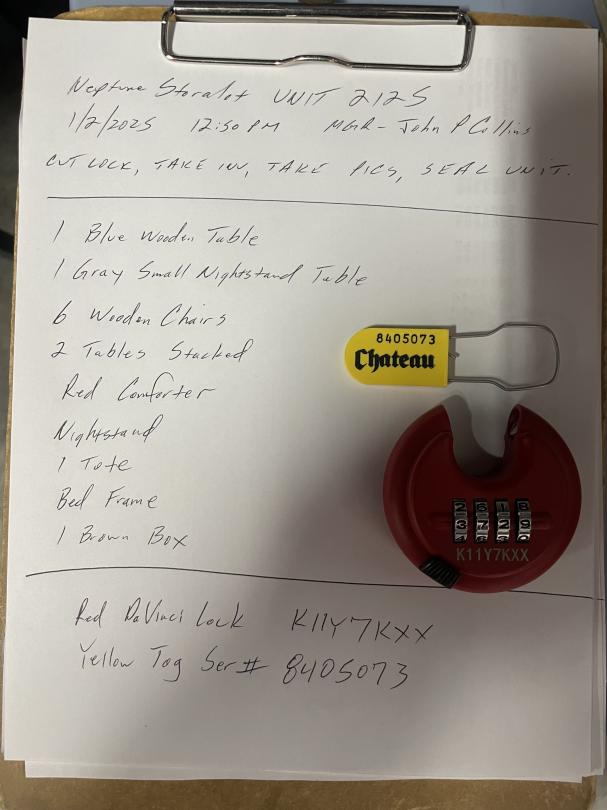 Neptune Storalot UNIT 2125
1/2/2025 12:50 PM MGR- John P Collins
CUT LOCK, TAKE INV, TAKE PICS, SEAL UNIT.
1 Blue Wooden Table
1 Gray Small Nightstand Table
6 Wooden Chairs
2 Tables Stacked
Red Comforter
Nightstand
1 Tote
Bed Frame
1 Brown Box
8405073
Chateau
K11Y7KXX
Red DaVinci Lock K11Y7KXX
Yellow Tag Ser# 8405073